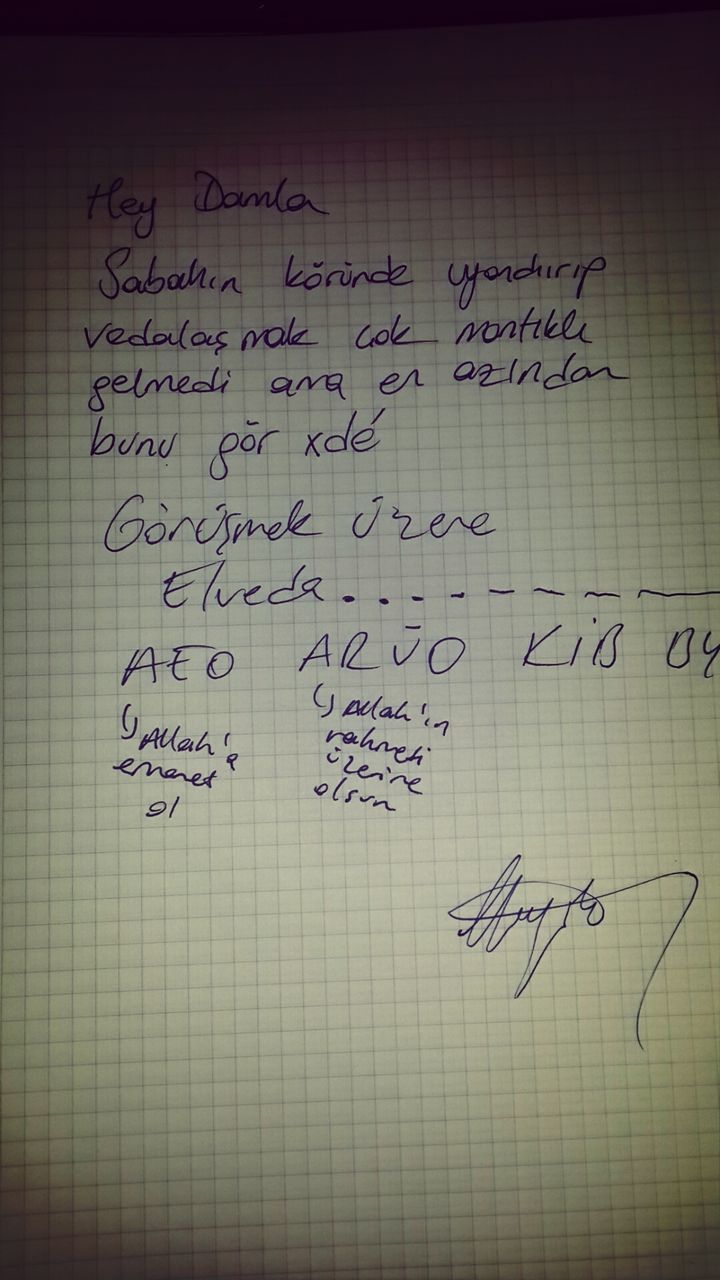 Hey Damla
Sabahın köründe uyandırıp
vedalaşmak çok mantıklı
gelmedi ama en azından
bunu gör xdé
Görüşmek üzere
Elveda...------
AEO ARÜO KİB BY
↳ Allah'a
emanet
ol
↳ Allah'ın
rahmeti
üzerine
olsun